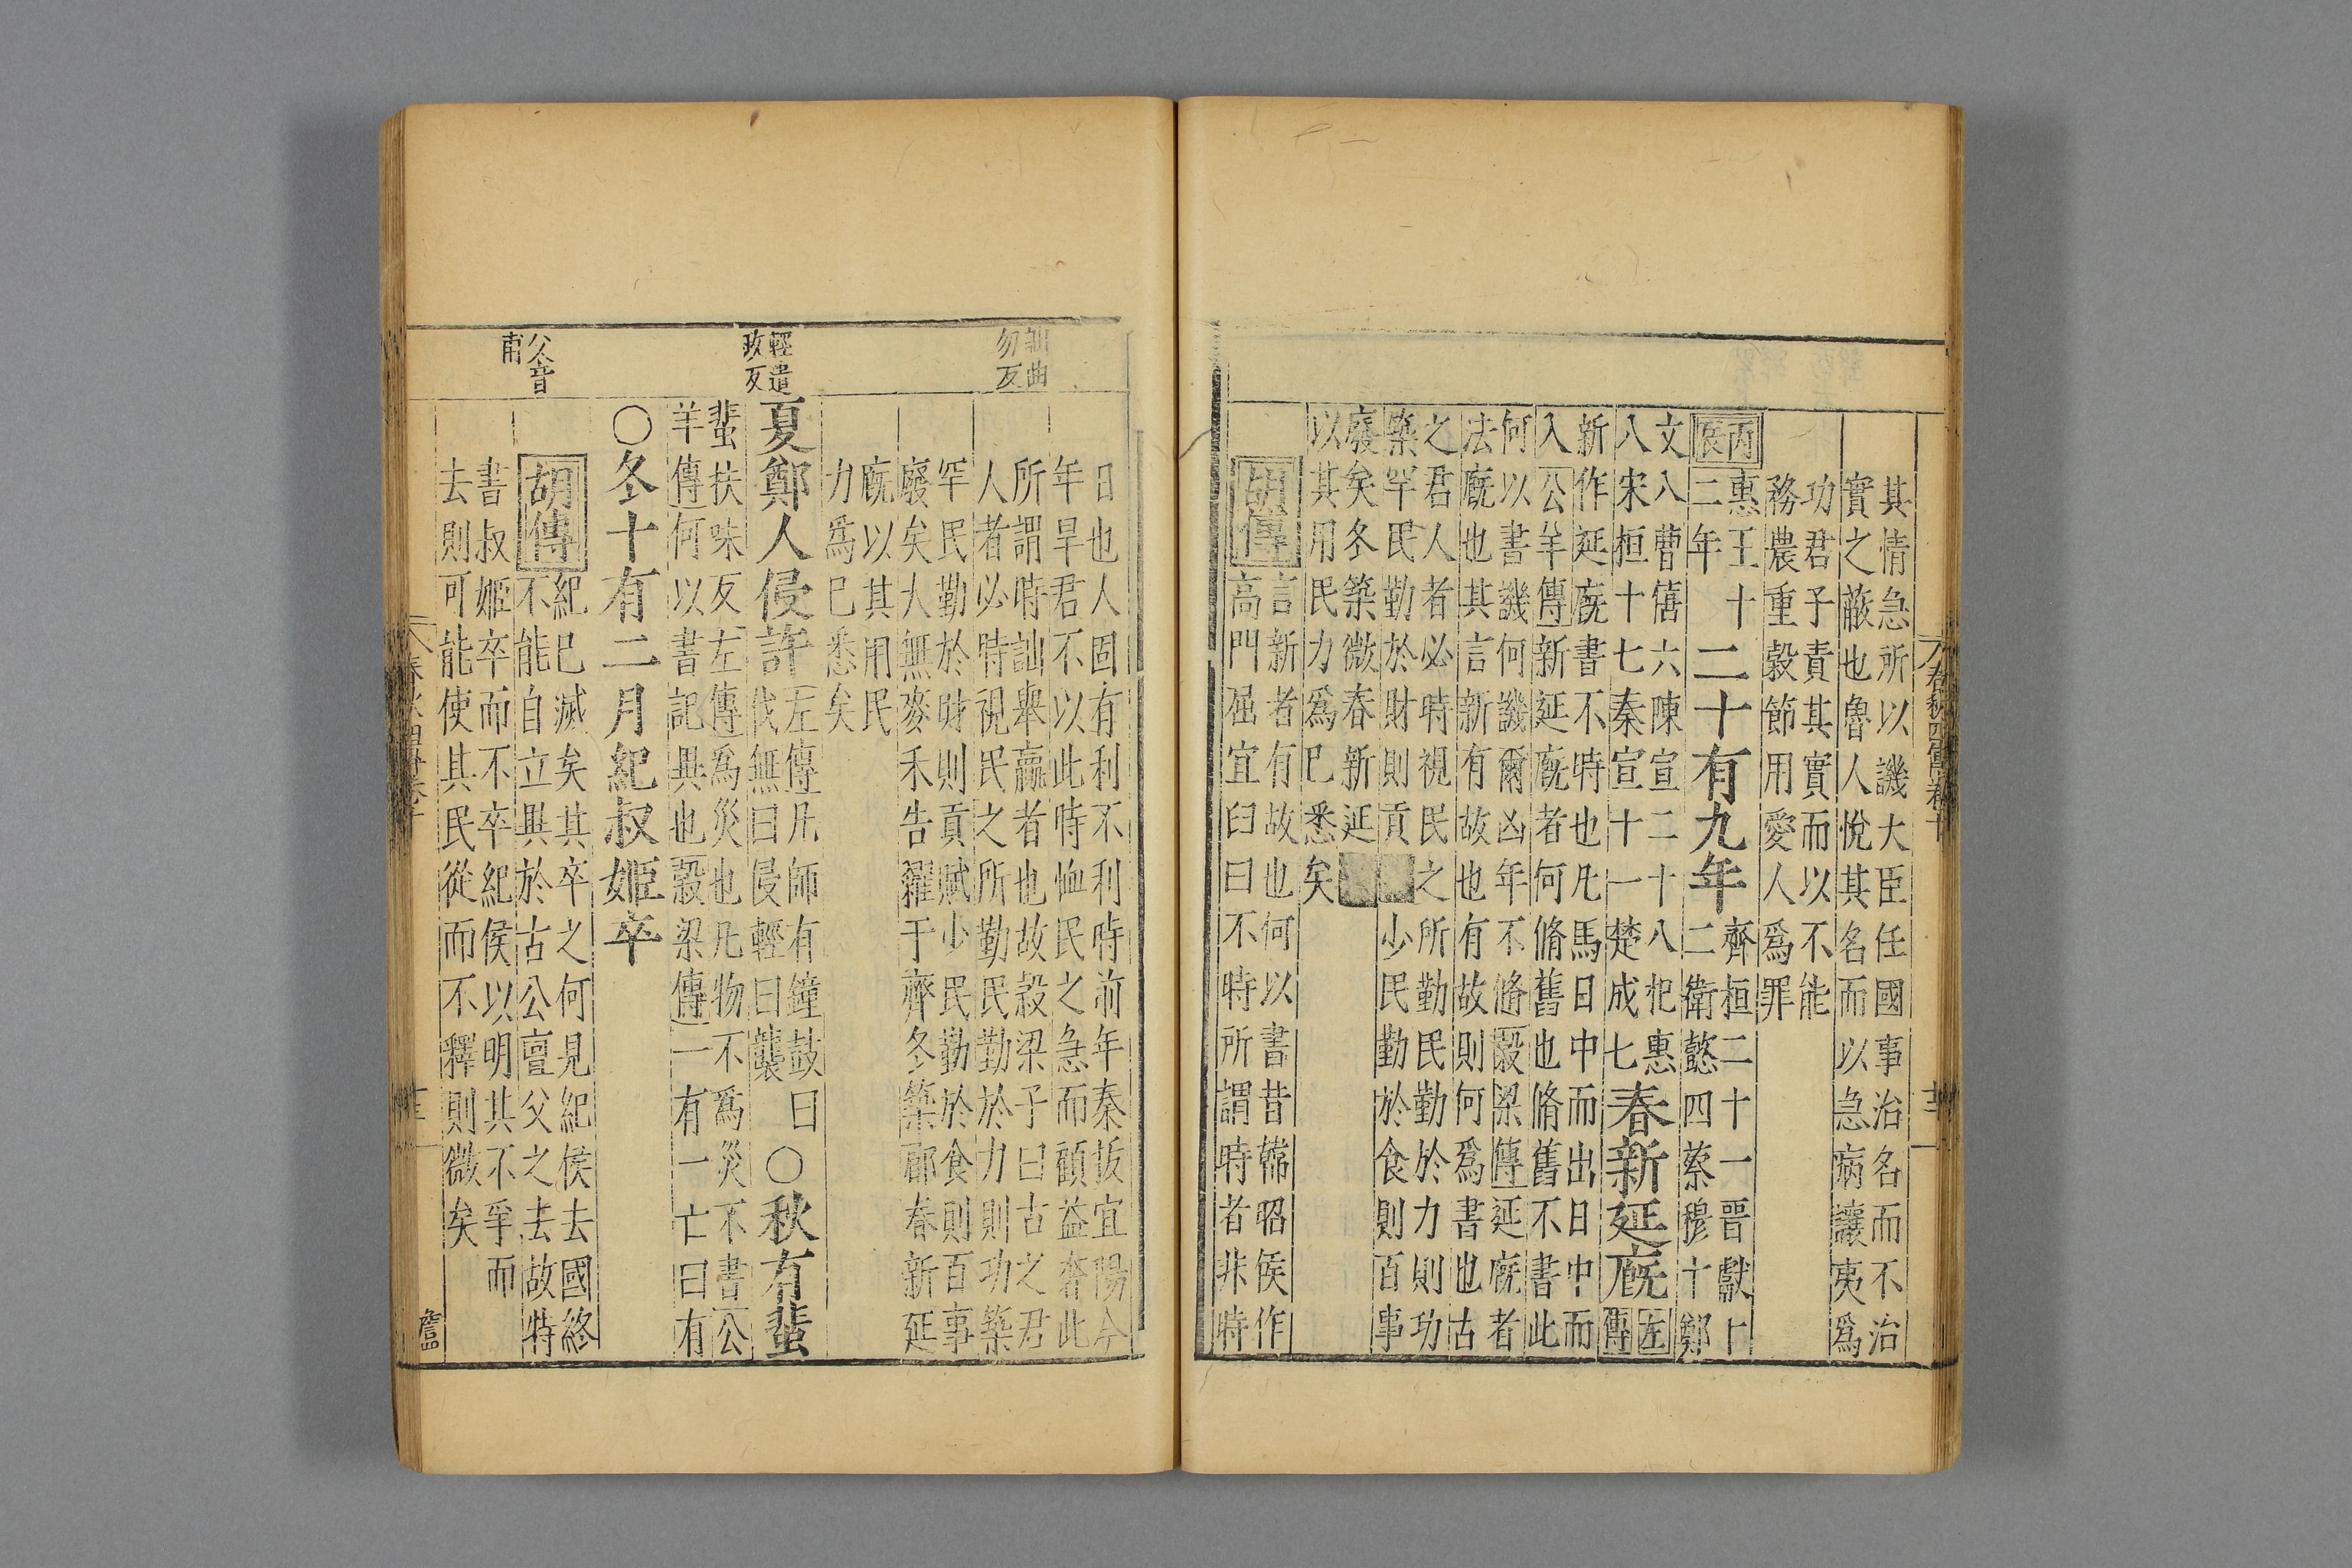 其情急所以譏大臣任國事治名而不治
實之蔽也魯人悅其名而以急病讓夷爲
功君子責其實而以不能
務農重穀節用愛人爲罪
丙辰
惠王十
二年
二十有九年
齊桓二十一晉獻十
二衛懿四蔡穆十鄭
文八曹僖六陳宣二十八杞惠
八宋桓十七秦宣十一楚成七
春新延廐
左
傳
新作延廐書不時也凡馬日中而出日中而
入公羊傳新延廐者何脩舊也脩舊不書此
何以書譏何譏爾凶年不脩穀梁傳延廐者
法廐也其言新有故也有故則何爲書也古
之君人者必時視民之所勤民勤於力則功
築罕民勤於財則貢少民勤於食則百事
廢矣冬築微春新延
以其用民力爲已悉矣
胡傳
言新者有故也何以書昔韓昭侯作
高門屈宜臼曰不時所謂時者非時
春秋四傳卷十
訕曲
勿反
日也人固有利不利時前年秦拔宜陽今
年旱君不以此時恤民之急而顧益奢此
所謂時訕舉贏者也故穀梁子曰古之君
人者必時視民之所勤民勤於力則功築
罕民勤於財則貢賦少民勤於食則百事
廢矣大無麥禾告糴于齊冬築郿春新延
廐以其用民
力爲已悉矣
輕遣
政反
夏鄭人侵許
左傳凡師有鐘鼓曰
伐無曰侵輕曰襲
○秋有蜚
蜚扶味反左傳爲災也凡物不爲災不書公
羊傳何以書記異也穀梁傳一有一亡曰有
○冬十有二月紀叔姬卒
父音
甫
胡傳
紀已滅矣其卒之何見紀侯去國終
不能自立異於古公亶父之去故特
書叔姬卒而不卒紀侯以明其不爭而
去則可能使其民從而不釋則微矣